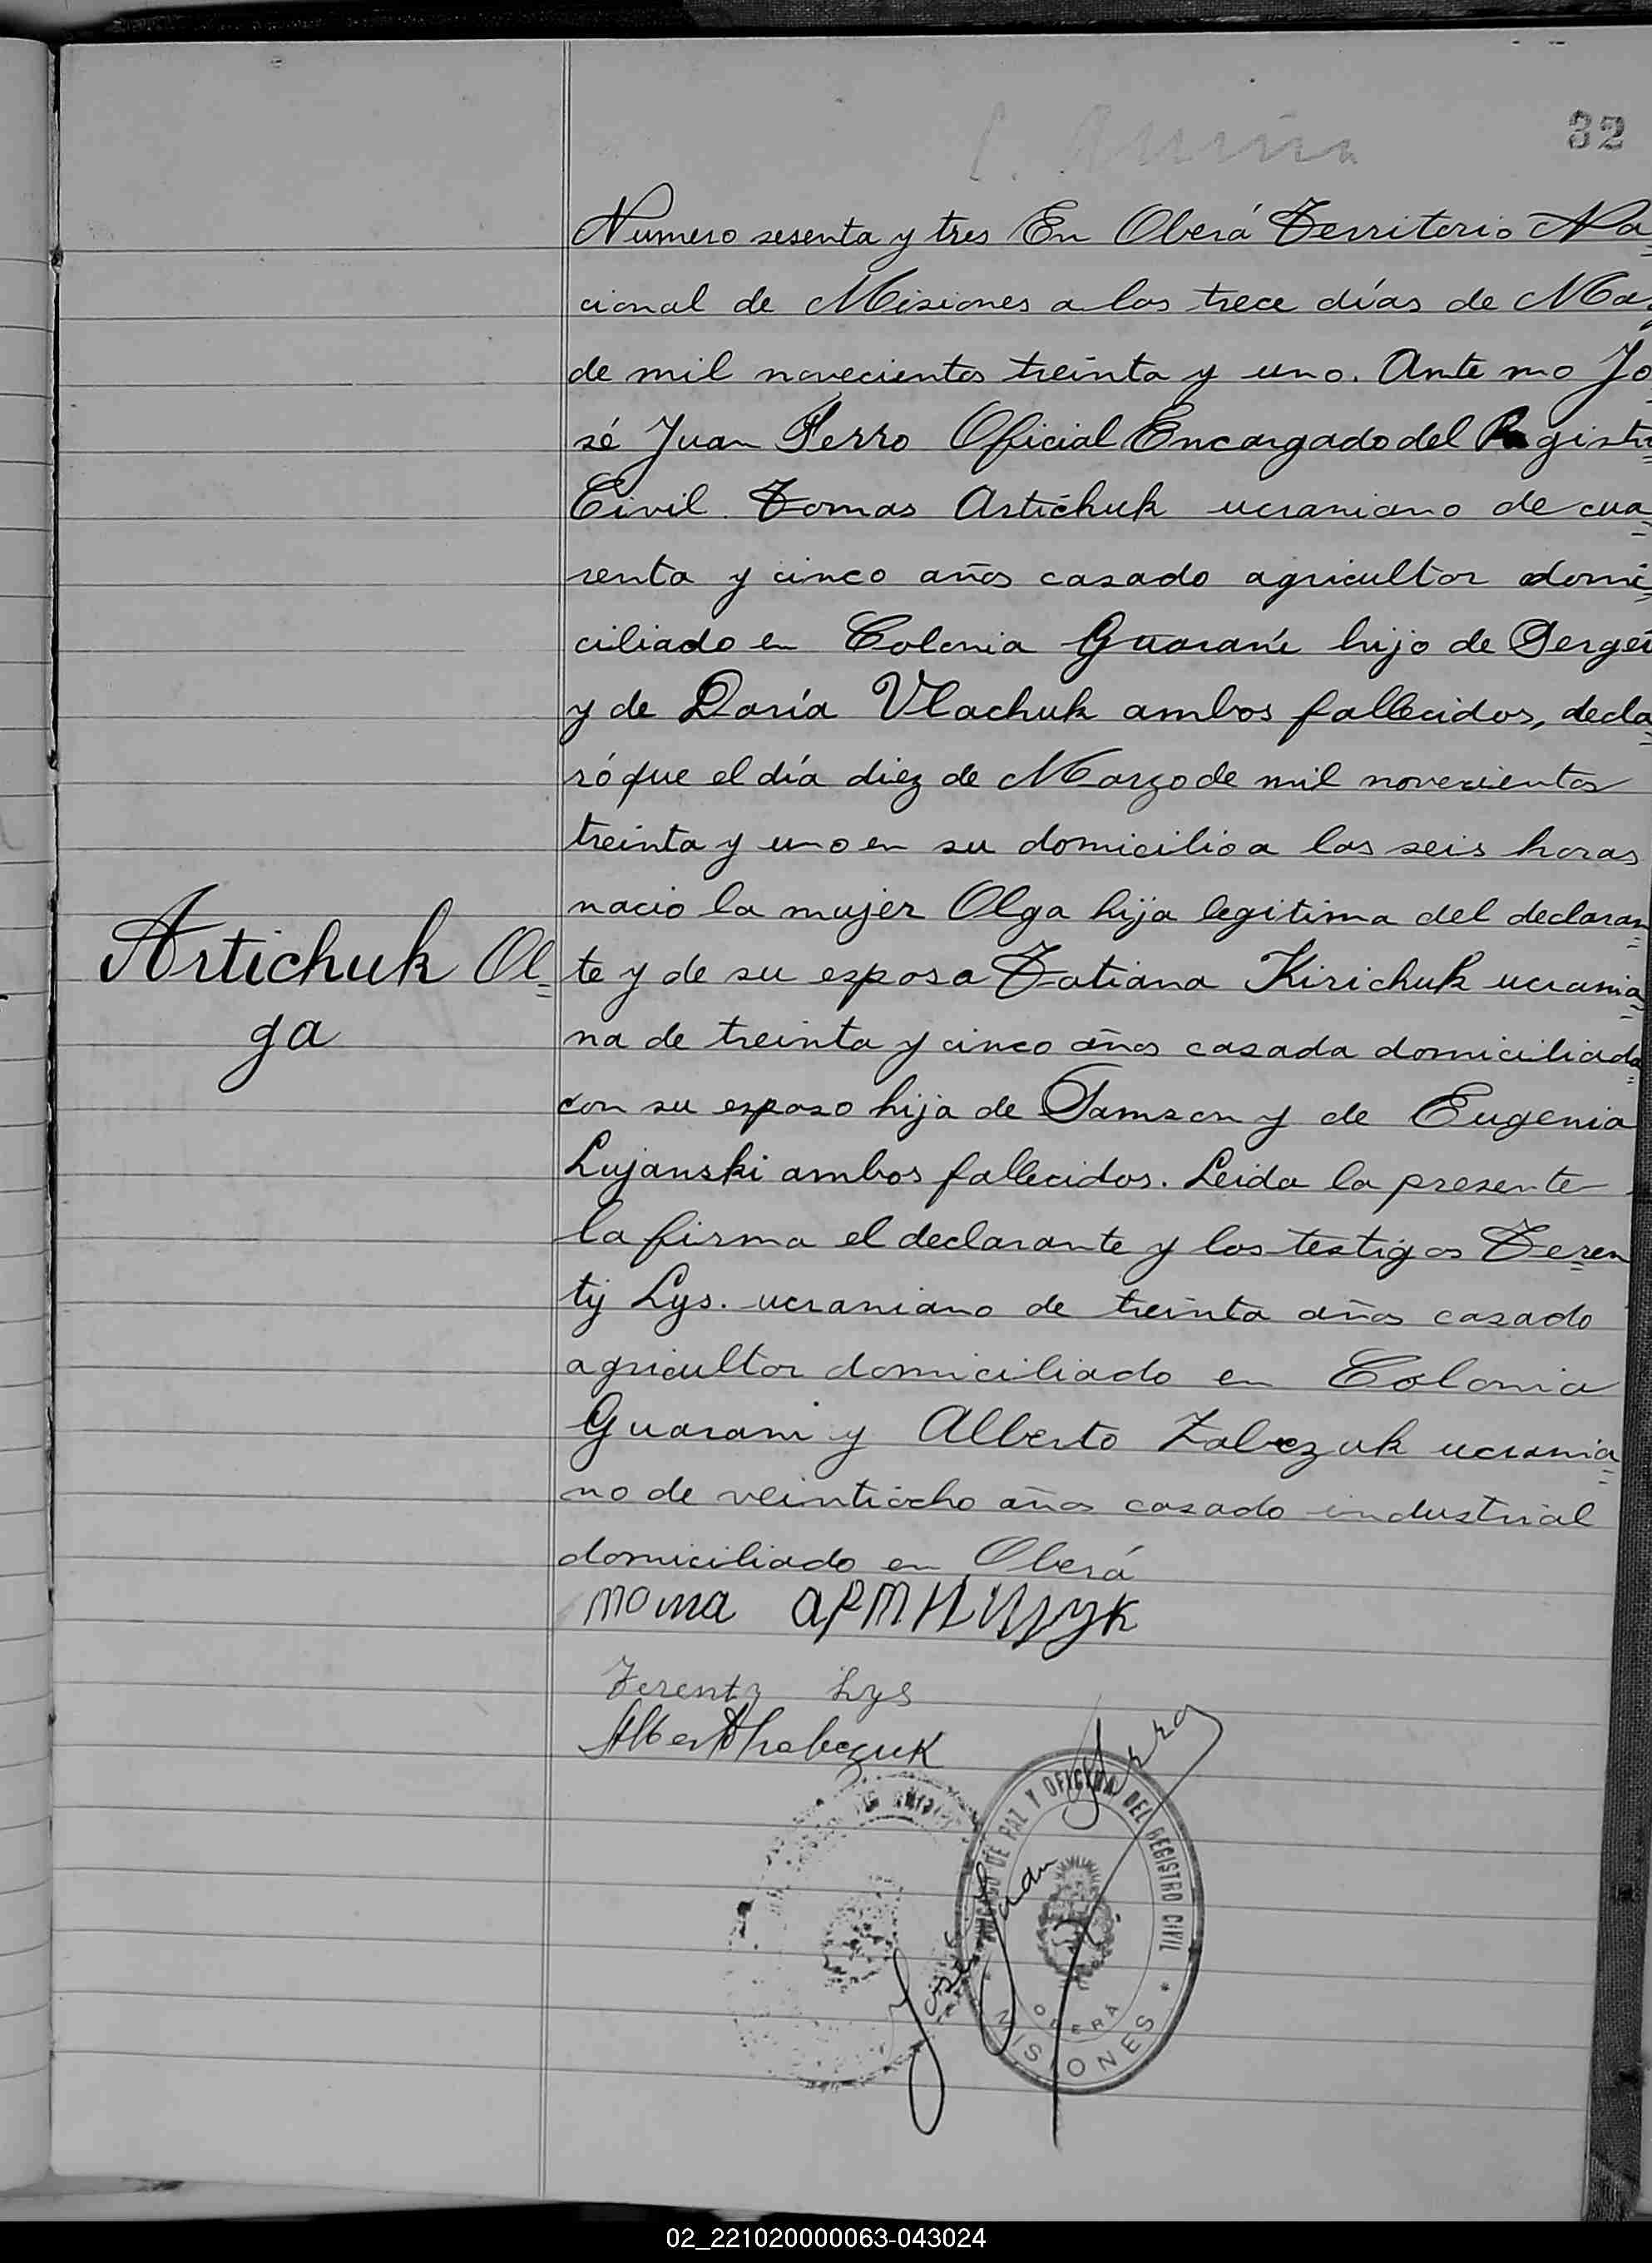 32
Numero sesenta y tres En Oberá Territorio Na=
cional de Misiones a los trece días de Mar
de mil novecientos treinta y uno. Ante mo Jo
sé Juan Ferro Oficial Encargado del Registr
Civil. Tomas Artichuk ucraniano de cua=
renta y cinco años casado agricultor domi=
ciliado en Colonia Guaraní hijo de Sergei
y de Daría Vlachuk ambos fallecidos, decla=
ró que el día diez de Marzo de mil novecientos
treinta y uno en su domicilio a las seis horas
nacio la mujer Olga hija legitima del declaran=
Artichuk Ol=
ga
te y de su esposa Tatiana Kirichuk ucrania=
na de treinta y cinco años casada domiciliada
con su esposo hija de Samson y de Eugenia
Lujanski ambos fallecidos. Leida la presente
la firma el declarante y los testigos Teren=
tij Lys. ucraniano de treinta años casado
agricultor domiciliado en Colonia
Guarani y Alberto Zabczuk ucrania=
no de veintiocho años casado industrial
domiciliado en Oberá
тома артищук
Terenty Lys
José Juan Ferro
DE PAZ Y OFICINA DEL REGISTRO CIVIL
OBERÁ
MISIONES
02_221020000063-043024